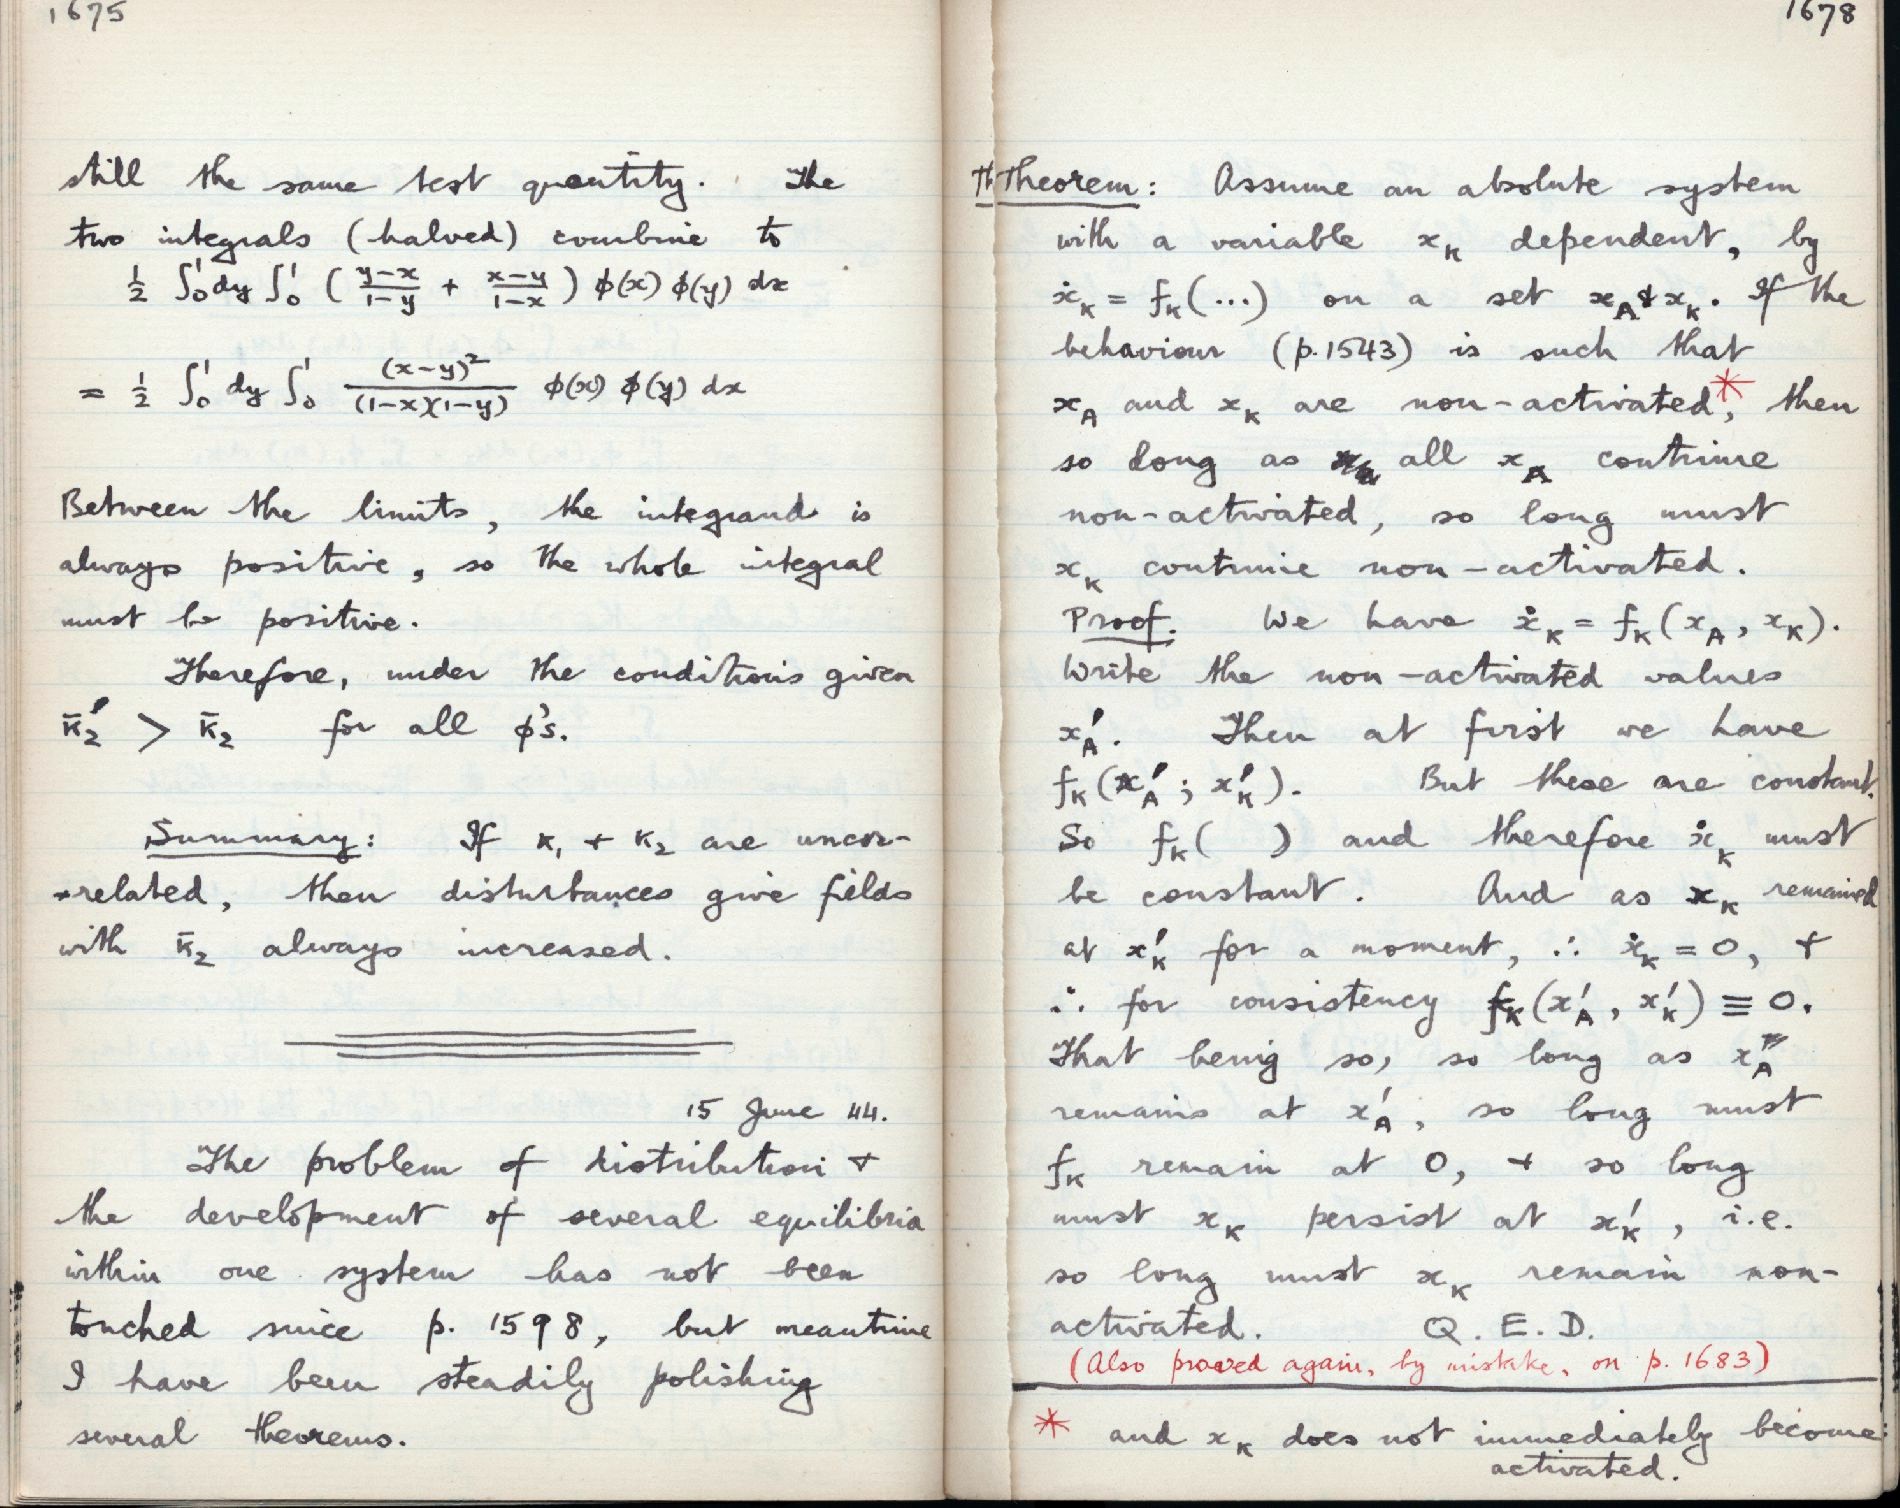 1675
still the same test quantity. The
two integrals (halved) combine to
½ ∫₀¹ dy ∫₀¹ ( (y−x)/(1−y) + (x−y)/(1−x) ) ϕ(x) ϕ(y) dx
= ½ ∫₀¹ dy ∫₀¹ (x−y)²/((1−x)(1−y)) ϕ(x) ϕ(y) dx
Between the limits, the integrand is
always positive, so the whole integral
must be positive.
Therefore, under the conditions given
κ̄₂′ > κ̄₂ for all ϕ's.
Summary: If κ₁ + κ₂ are uncor-
-related, then disturbances give fields
with κ̄₂ always increased.
15 June 44.
The problem of distribution +
the development of several equilibria
within one system has not been
touched since p. 1598, but meantime
I have been steadily polishing
several theorems.
1678
Theorem: Assume an absolute system
with a variable x_K dependent, by
ẋ_K = f_K(...) on a set x_A & x_K. If the
behaviour (p.1543) is such that
x_A and x_K are non-activated*, then
so long as all x_A continue
non-activated, so long must
x_K continue non-activated.
Proof. We have ẋ_K = f_K(x_A, x_K).
Write the non-activated values
x′_A. Then at first we have
f_K(x′_A; x′_K). But these are constant.
So f_K( ) and therefore ẋ_K must
be constant. And as x_K remained
at x′_K for a moment, ∴ ẋ_K = 0, +
∴ for consistency f_K(x′_A, x′_K) ≡ 0.
That being so, so long as x_A
remains at x′_A, so long must
f_K remain at 0, + so long
must x_K persist at x′_K, i.e.
so long must x_K remain non-
activated. Q.E.D.
(Also proved again, by mistake, on p. 1683)
* and x_K does not immediately become
activated.